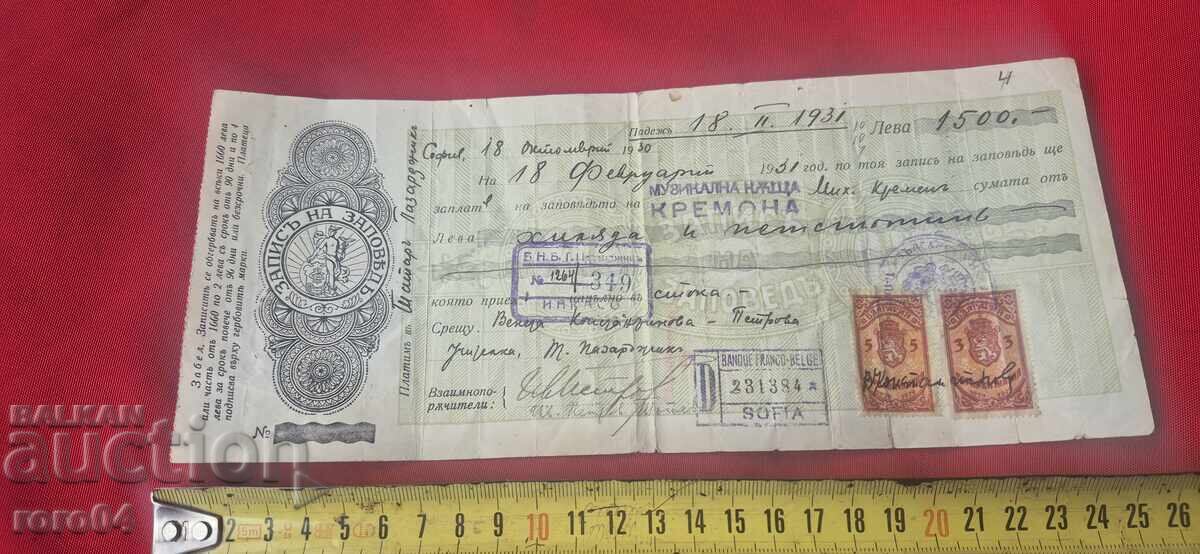 4
Падежъ 18. II. 1931 Лева 1500.-
София, 18 Октомврий 1930
На 18 Февруарий 1931 год. по тоя запись на заповѣдь ще
МУЗИКАЛНА КѪЩА
заплатя на заповѣдьта на КРЕМОНА Мих. Кременъ сумата отъ
Лева хиляда и петстотинъ
Б.Н.Б.
№ 1264 349
която приех напълно въ стока -
Срещу. Венета Константинова - Петрова
Учителка, Т. Пазарджикъ
Взаимнопо-
рѫчители:
BANQUE FRANCO-BELGE
D 231384
SOFIA
5 5
3 3
Платимъ въ Татаръ Пазарджикъ
ЗАПИСЪ НА ЗАПОВѢДЬ
№
Забел. Записитѣ се обгербватъ на всѣки 1660 лева
или часть отъ 1660 по 2 лева съ срокъ отъ 90 дни и по 4
лева за срокъ повече отъ 90 дни или безсрочни. Платеца
подписва върху гербовитѣ марки.
BALKAN
auction
roro64
2 3 4 5 6 7 8 9 10 11 12 13 14 15 16 17 18 19 20 21 22 23 24 25 26